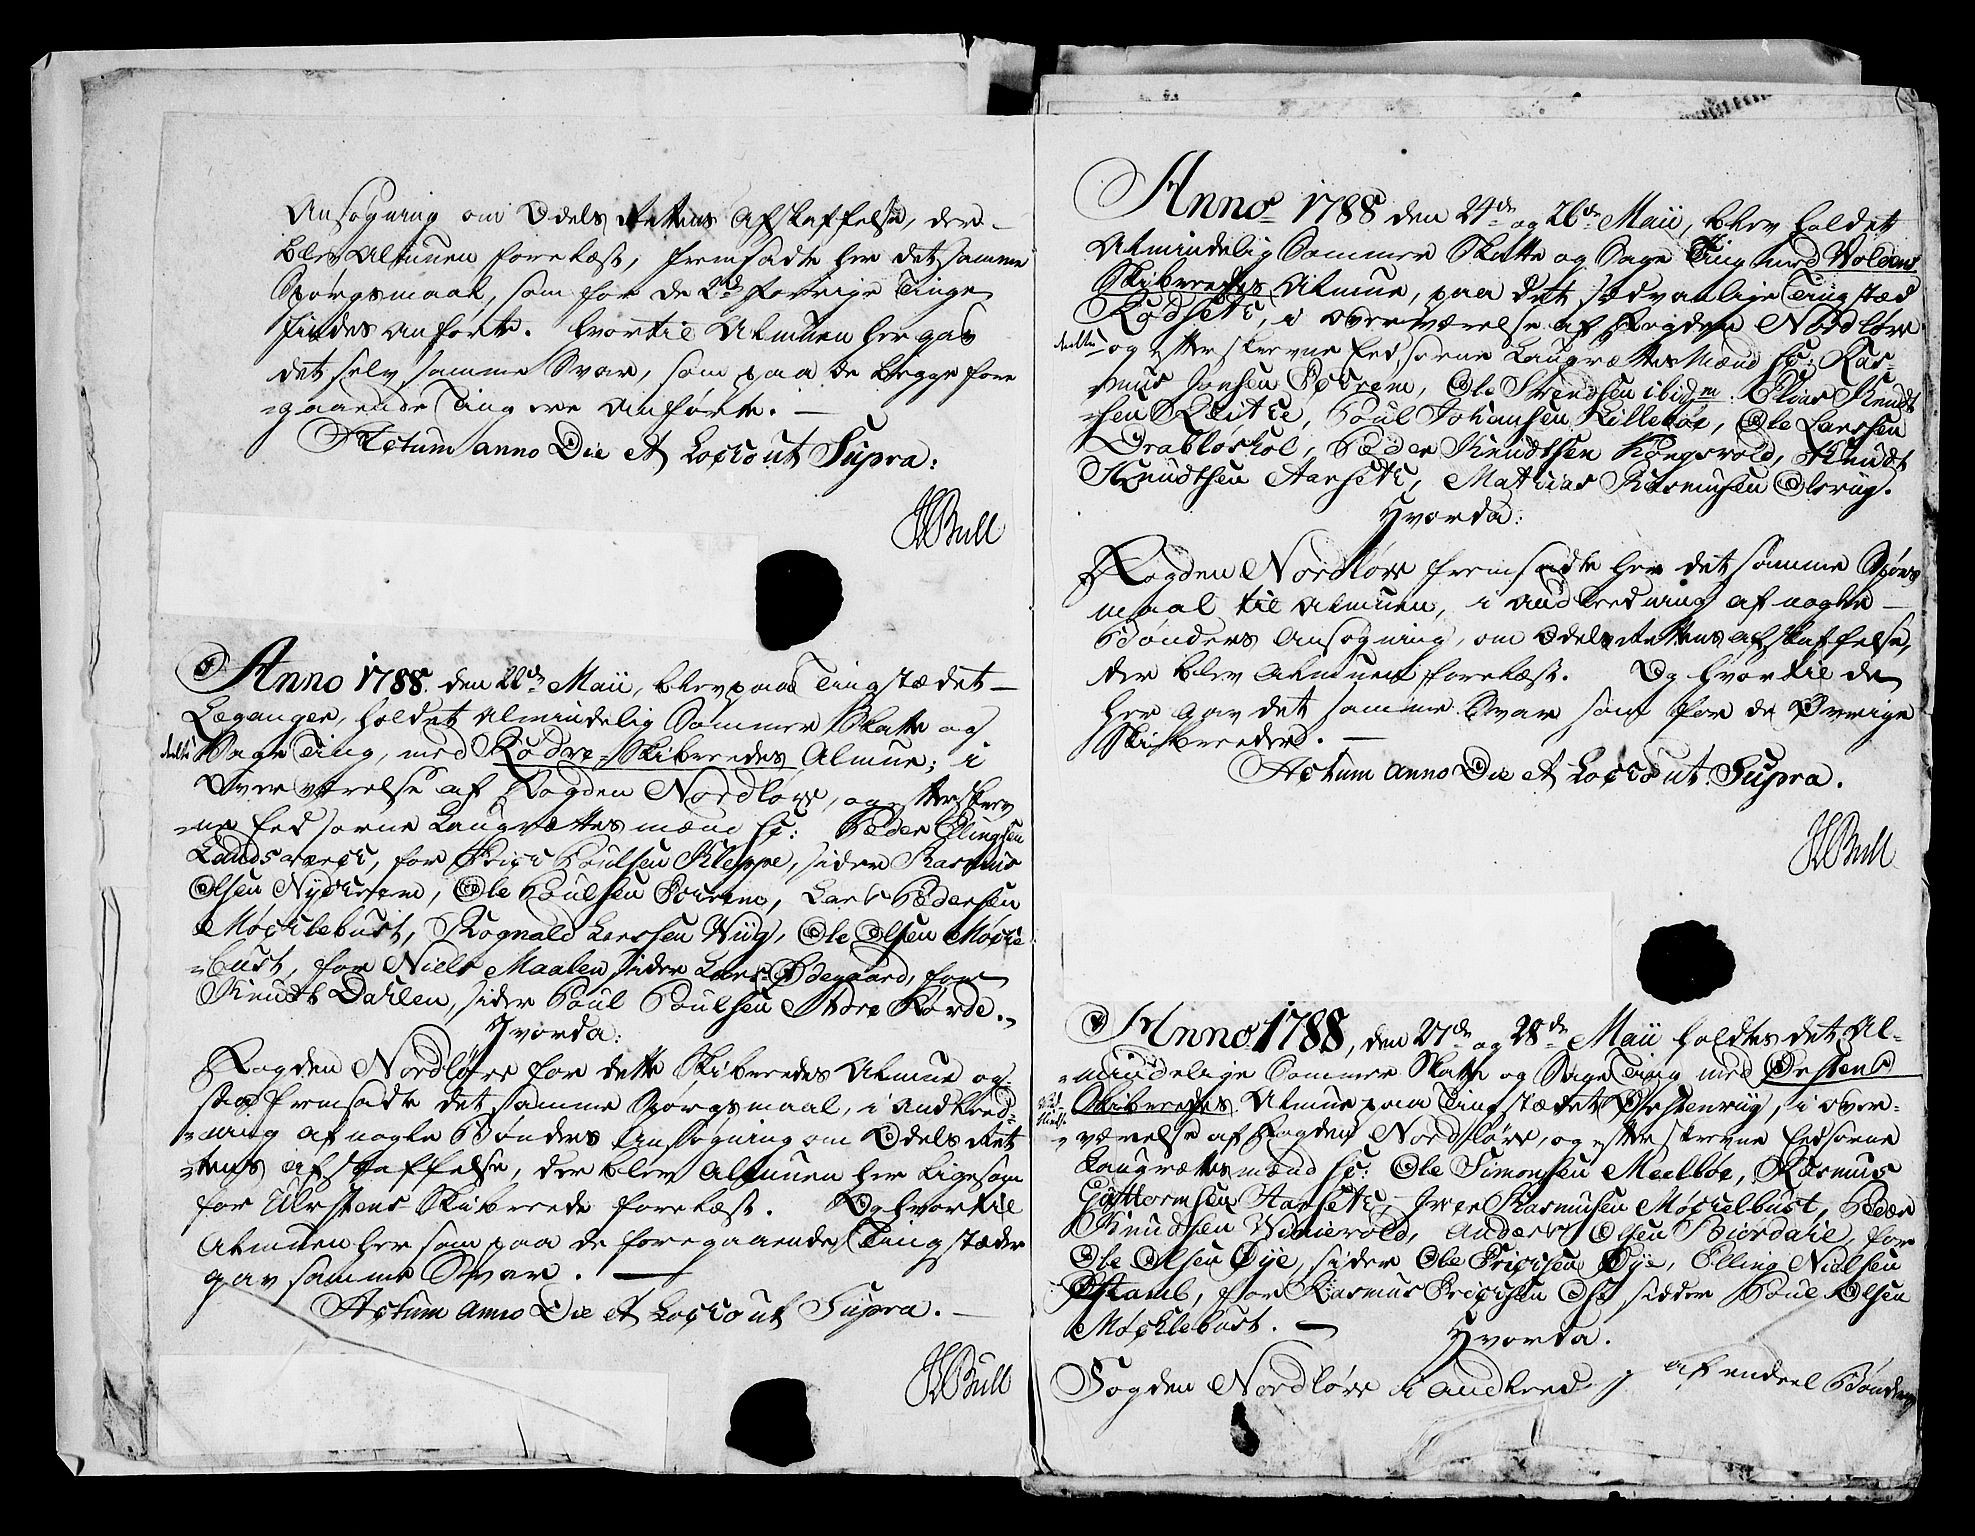 Ansøgning om Odels Rettens Afskaffelse, der
blev Almuen forelæst, fremsadte her det samme
Spørgsmaal, som for de 2de forrige Tinge
findes anførte. hvortil Almuen her gav
det selv samme Svar, som paa de begge fore
=gaaende Ting ere anførte. —
Actum anno Die et Loco ut Supra:
Bull
Anno 1788. den 22de Maii, blev paa Tingstædet
Leganger, holdet Almindelig Sommer Skatte og
Sage Ting, med Rødve Skibredes Almue; i
Overværelse af Fogden Nordløve, og efterskrev
=ne Eedsorne Laugrættesmænd sc: Peder Elingsen
Landsværck, for Poul Poulsen Kleppe, sider Rasmus
Olsen Nyckrem, Ole Poulsen Porrem, Lars Pedersen
MØcklebust, Rognald Larssen Wiig, Ole Olsen MØckle
=bust, for Niels Maalen sider Lars Ødegaard, for
Knudt Dahlen, sider Poul Poulsen Indre Rørde.
Hvorda:
Fogden Nordløve for dette Skibredes Almue og
saa fremsadte det samme Spørgsmaal, i Andled=
=ning af nogle Bønders Ansøgning om Odels Ret
=tens Afskaffelse, der blev Almuen her ligesom
for Ulfstens Skibrede forelæst. Og hvortil
Almuen her som paa de foregaaende Tingstæder
gav samme Svar. —
Actum anno Die et Loco ut Supra. —
Bull
Anno 1788 den 24de og 26de Maii, blev holdet
Almindelig Sommer Skatte og Sage Ting med Woldens
Skibredes Almue, paa det sædvanlige Tingstæd
Rødsetr, i overværelse af Fogden Nordløve
og efterskrevne Eedsorne Laugrættes Mænd sc: Ras=
=mus Jonsen Porrem, Ole Svendsen ibidm Elias Knudt
=sen Reitre, Poul Johansen Lillebøe, Ole Larssen
Drabløshol, Peder Knudtsen Kongsvold, Knudt
Knudtsen Aarsetr, Mathias Rasmusen Olsrug.
Hvorda:
Fogden Nordløve fremsadte her det samme Spørs
maal til Almuen, i Andledning af nogle
Bønders Ansøgning, om Odels Rettens Afskaffelse,
der blev Almuen forelæst. Og hvortil de
her gav det samme Svar som for de Øvrige
Skibreder. —
Actum anno Die et Loco ut Supra.
Bull
Anno 1788, den 27de og 28de Maii holdtes det Al=
=mindelige Sommer Skatte og Sage Ting med Ørstens
Skibredes Almue paa Tingstædet Ørstenviig, i over=
=værelse af Fogden Nordløve, og efterskrevne Eedsorne
Laugrættesmænd sc: Ole Simonsen Mellbøe, Rasmus
Guttormsen Aarsetr, Iver Rasmusen Møckelbust, Peder
Knudsen Winievold, Anders Olsen Biørdahl, for
Ole Olsen Øye, sider Ole Pricksen Øye, Elling Nielsen
Stamb, for Rasmus Pricksen sidder Poul Olsen
Møcklebust. — Hvorda.
Fogden Nordløve i Andled: af endeel Bønders